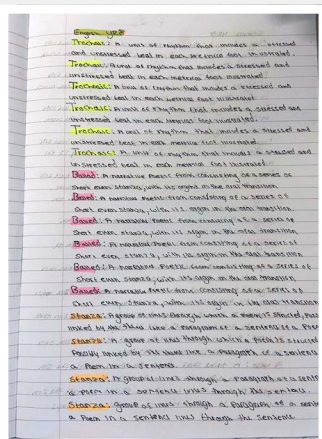 English YR8
Trochaic: A unit of rhythm that includes a stressed
and unstressed beat in each metrical foot illustrated.
Trochaic: A unit of rhythm that includes a stressed and
unstressed beat in each metrical foot illustrated.
Trochaic: A unit of rhythm that includes a stressed and
unstressed beat in each metrical foot illustrated.
Trochaic: A unit of rhythm that includes a stressed and
unstressed beat in each metrical foot illustrated.
Trochaic: A unit of rhythm that includes a stressed and
unstressed beat in each metrical foot illustrated.
Trochaic: A unit of rhythm that includes a stressed
unstressed beat in each metrical foot illustrated
Ballad: A narrative Poetic form consisting of a series of
Short even stanzas, with its origin in the oral tradition
Ballad: A narrative Poetic form consisting of a series of
Short even stanza, with its origin in the oral tradition
Ballad: A narrative form consisting of a series of
Short even stanza, with its origin in the oral transition
Ballad: A narrative Poetic form consisting of a series of
Short even stanza, with its origin in the oral transition
Ballad: A narrative Poetic form consisting of a series of
Short even stanza, with its origin in the oral transition
Ballad: A narrative Poetic form consisting of a series of
Short even stanza, with its origin in the oral transition
Stanza: A group of lines through which a Poem is structed, Possibly
linked by the like a Paragraph of a sentence of a Poem
Stanza: A group of lines through which a Poem is structed
Possibly linked by the like a Paragraph of a sentence
a Poem in a sentence.
Stanza: A group of lines through a Paragraph of a sentence
a Poem in a sentence lines through the sentence.
Stanza: group of lines through a Paragraph of a sentence
a Poem in a sentence lines through the sentence